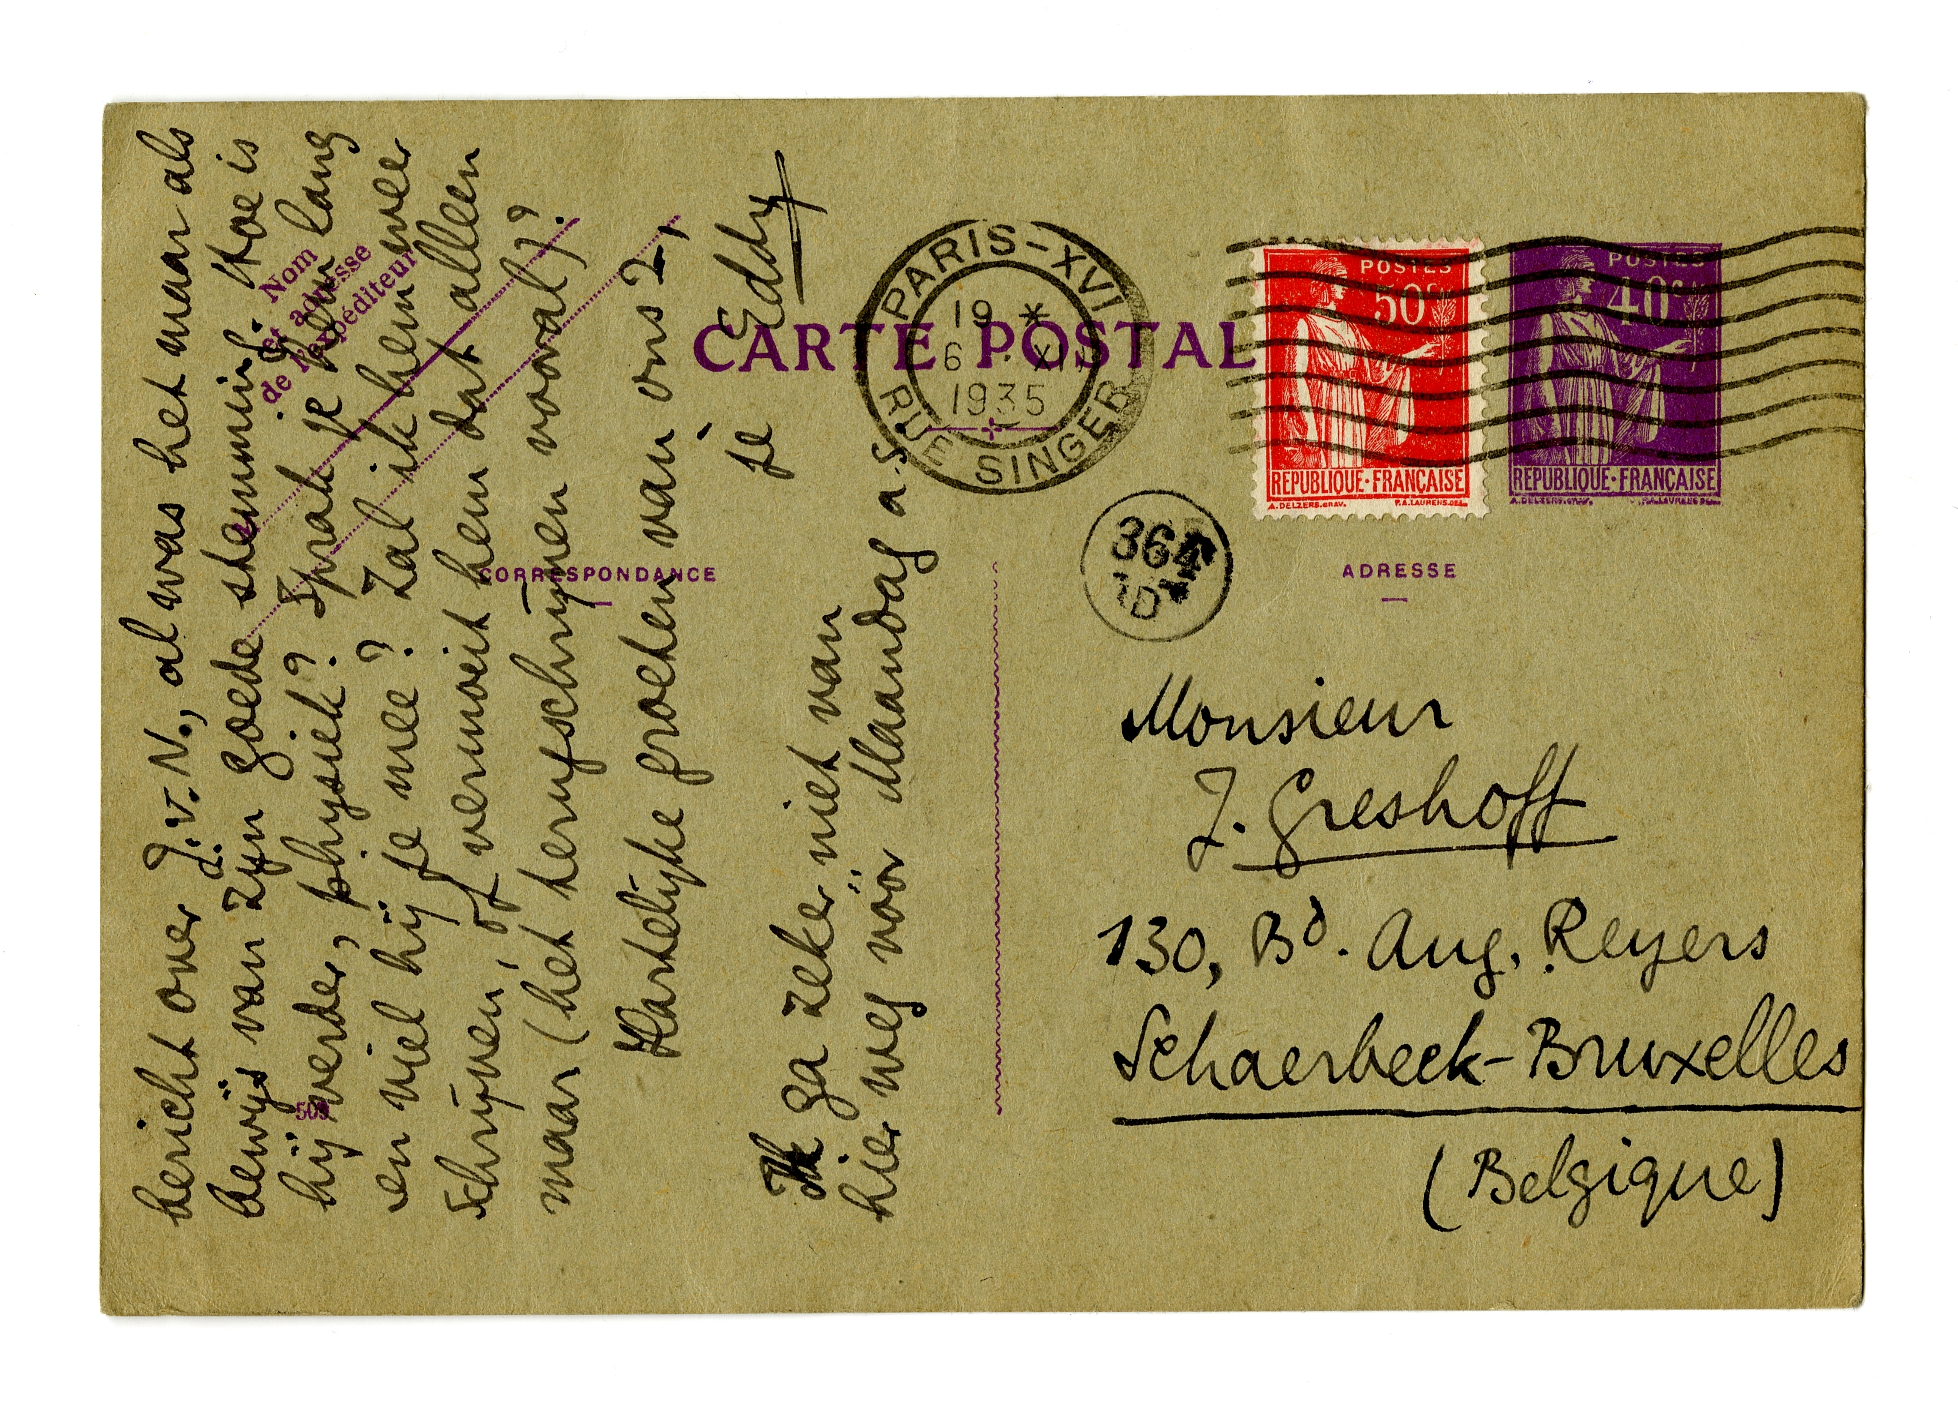 bericht over J.v.N., al was het maar als
bewijs van zijn goede stemming. Hoe is
hij verder, physiek? Sprak je hem lang
en viel hij je mee? Zal ik hem weer
schrijven, of vermoeit hem dat alleen
maar (het terugschrijven vooral)?
Hartelijke groeten van ons 2,
je Eddy
Ik ga zeker niet van
hier weg vóór Maandag a.s.
Nom
et adresse
de l'expéditeur
CARTE POSTALE
CORRESPONDANCE
ADRESSE
509
PARIS-XVI
19 *
6 · XII
1935
RUE SINGER
POSTES
50c
REPUBLIQUE·FRANÇAISE
A.DELZERS.GRAV. P.A.LAURENS.DEL.
POSTES
40c
REPUBLIQUE·FRANÇAISE
A.DELZERS.GRAV. P.A.LAURENS DEL.
364
Monsieur
J. Greshoff
130, Bd. Aug. Reyers
Schaerbeek-Bruxelles
(Belgique)